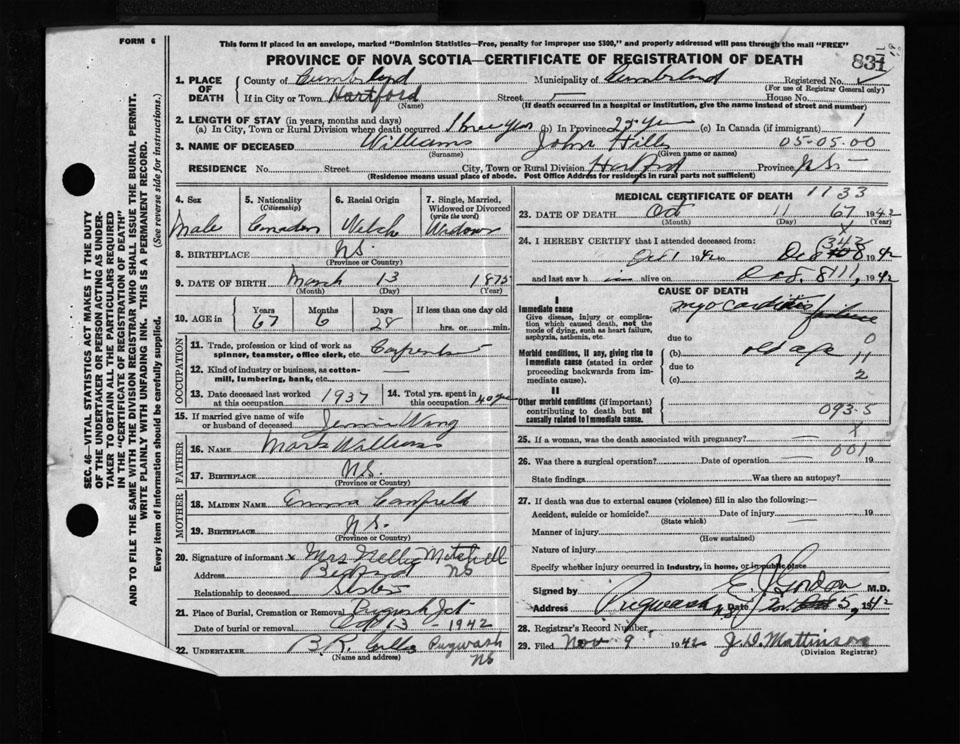 FORM 6
This form if placed in an envelope, marked "Dominion Statistics—Free, penalty for improper use $300," and properly addressed will pass through the mail "FREE"
PROVINCE OF NOVA SCOTIA—CERTIFICATE OF REGISTRATION OF DEATH
831
1. PLACE OF DEATH
County of Cumberland Municipality of Cumberland Registered No.
(For use of Registrar General only)
If in City or Town Hartford Street — House No.
(Name) (If death occurred in a hospital or institution, give the name instead of street and number)
2. LENGTH OF STAY (in years, months and days)
(a) In City, Town or Rural Division where death occurred (b) In Province (c) In Canada (if immigrant)
3. NAME OF DECEASED Williams John Hills 05-05-00
(Surname) (Given name or names)
RESIDENCE No. Street City, Town or Rural Division Hartford Province N.S.
(Residence means usual place of abode. Post Office Address for residents in rural parts not sufficient)
4. Sex Male
5. Nationality (Citizenship) Canadian
6. Racial Origin Welch
7. Single, Married, Widowed or Divorced (write the word) Widower
8. BIRTHPLACE N.S.
(Province or Country)
9. DATE OF BIRTH March 13 1875
(Month) (Day) (Year)
10. AGE in Years 67 Months 6 Days 28 If less than one day old hrs. or min.
OCCUPATION
11. Trade, profession or kind of work as spinner, teamster, office clerk, etc. Carpenter
12. Kind of industry or business, as cotton-mill, lumbering, bank, etc.
13. Date deceased last worked at this occupation 1937
14. Total yrs. spent in this occupation 40 yrs
15. If married give name of wife or husband of deceased Jennie Wing
FATHER
16. NAME Mark Williams
17. BIRTHPLACE N.S.
(Province or Country)
MOTHER
18. MAIDEN NAME Emma Canfield
19. BIRTHPLACE N.S.
(Province or Country)
20. Signature of informant x Mrs Nellie Mitchell
Address NS
Relationship to deceased Sister
21. Place of Burial, Cremation or Removal Pugwash Jct
Date of burial or removal 13 - 1942
22. UNDERTAKER B.K. Pugwash NS
(Name and address)
MEDICAL CERTIFICATE OF DEATH
1133
23. DATE OF DEATH Oct 11 67 1942
(Month) (Day) (Year)
24. I HEREBY CERTIFY that I attended deceased from:
1942 to 1942
and last saw h alive on 1942
CAUSE OF DEATH
I
Immediate cause
Give disease, injury or complication which caused death, not the mode of dying, such as heart failure, asphyxia, asthenia, etc.
(a) myocarditis failure
due to 0
Morbid conditions, if any, giving rise to immediate cause (stated in order proceeding backwards from immediate cause).
(b) old age 11
due to
(c) 2
II
Other morbid conditions (if important) contributing to death but not causally related to immediate cause.
093-5
25. If a woman, was the death associated with pregnancy? —
001
26. Was there a surgical operation? Date of operation 19
State findings Was there an autopsy?
27. If death was due to external causes (violence) fill in also the following:—
Accident, suicide or homicide? Date of injury 19
(State which)
Manner of injury
(How sustained)
Nature of injury
Specify whether injury occurred in industry, in home, or in public place
Signed by E. J. Gordon M.D.
Address Pugwash Date Nov. 5, 1942
28. Registrar's Record Number
29. Filed Nov 9 1942 J. D. Mattinson
(Division Registrar)
SEC. 46—VITAL STATISTICS ACT MAKES IT THE DUTY
OF THE UNDERTAKER OR PERSON ACTING AS UNDER-
TAKER TO OBTAIN ALL THE PARTICULARS REQUIRED
IN THE "CERTIFICATE OF REGISTRATION OF DEATH"
AND TO FILE THE SAME WITH THE DIVISION REGISTRAR WHO SHALL ISSUE THE BURIAL PERMIT.
WRITE PLAINLY WITH UNFADING INK. THIS IS A PERMANENT RECORD.
Every item of information should be carefully supplied. (See reverse side for instructions.)